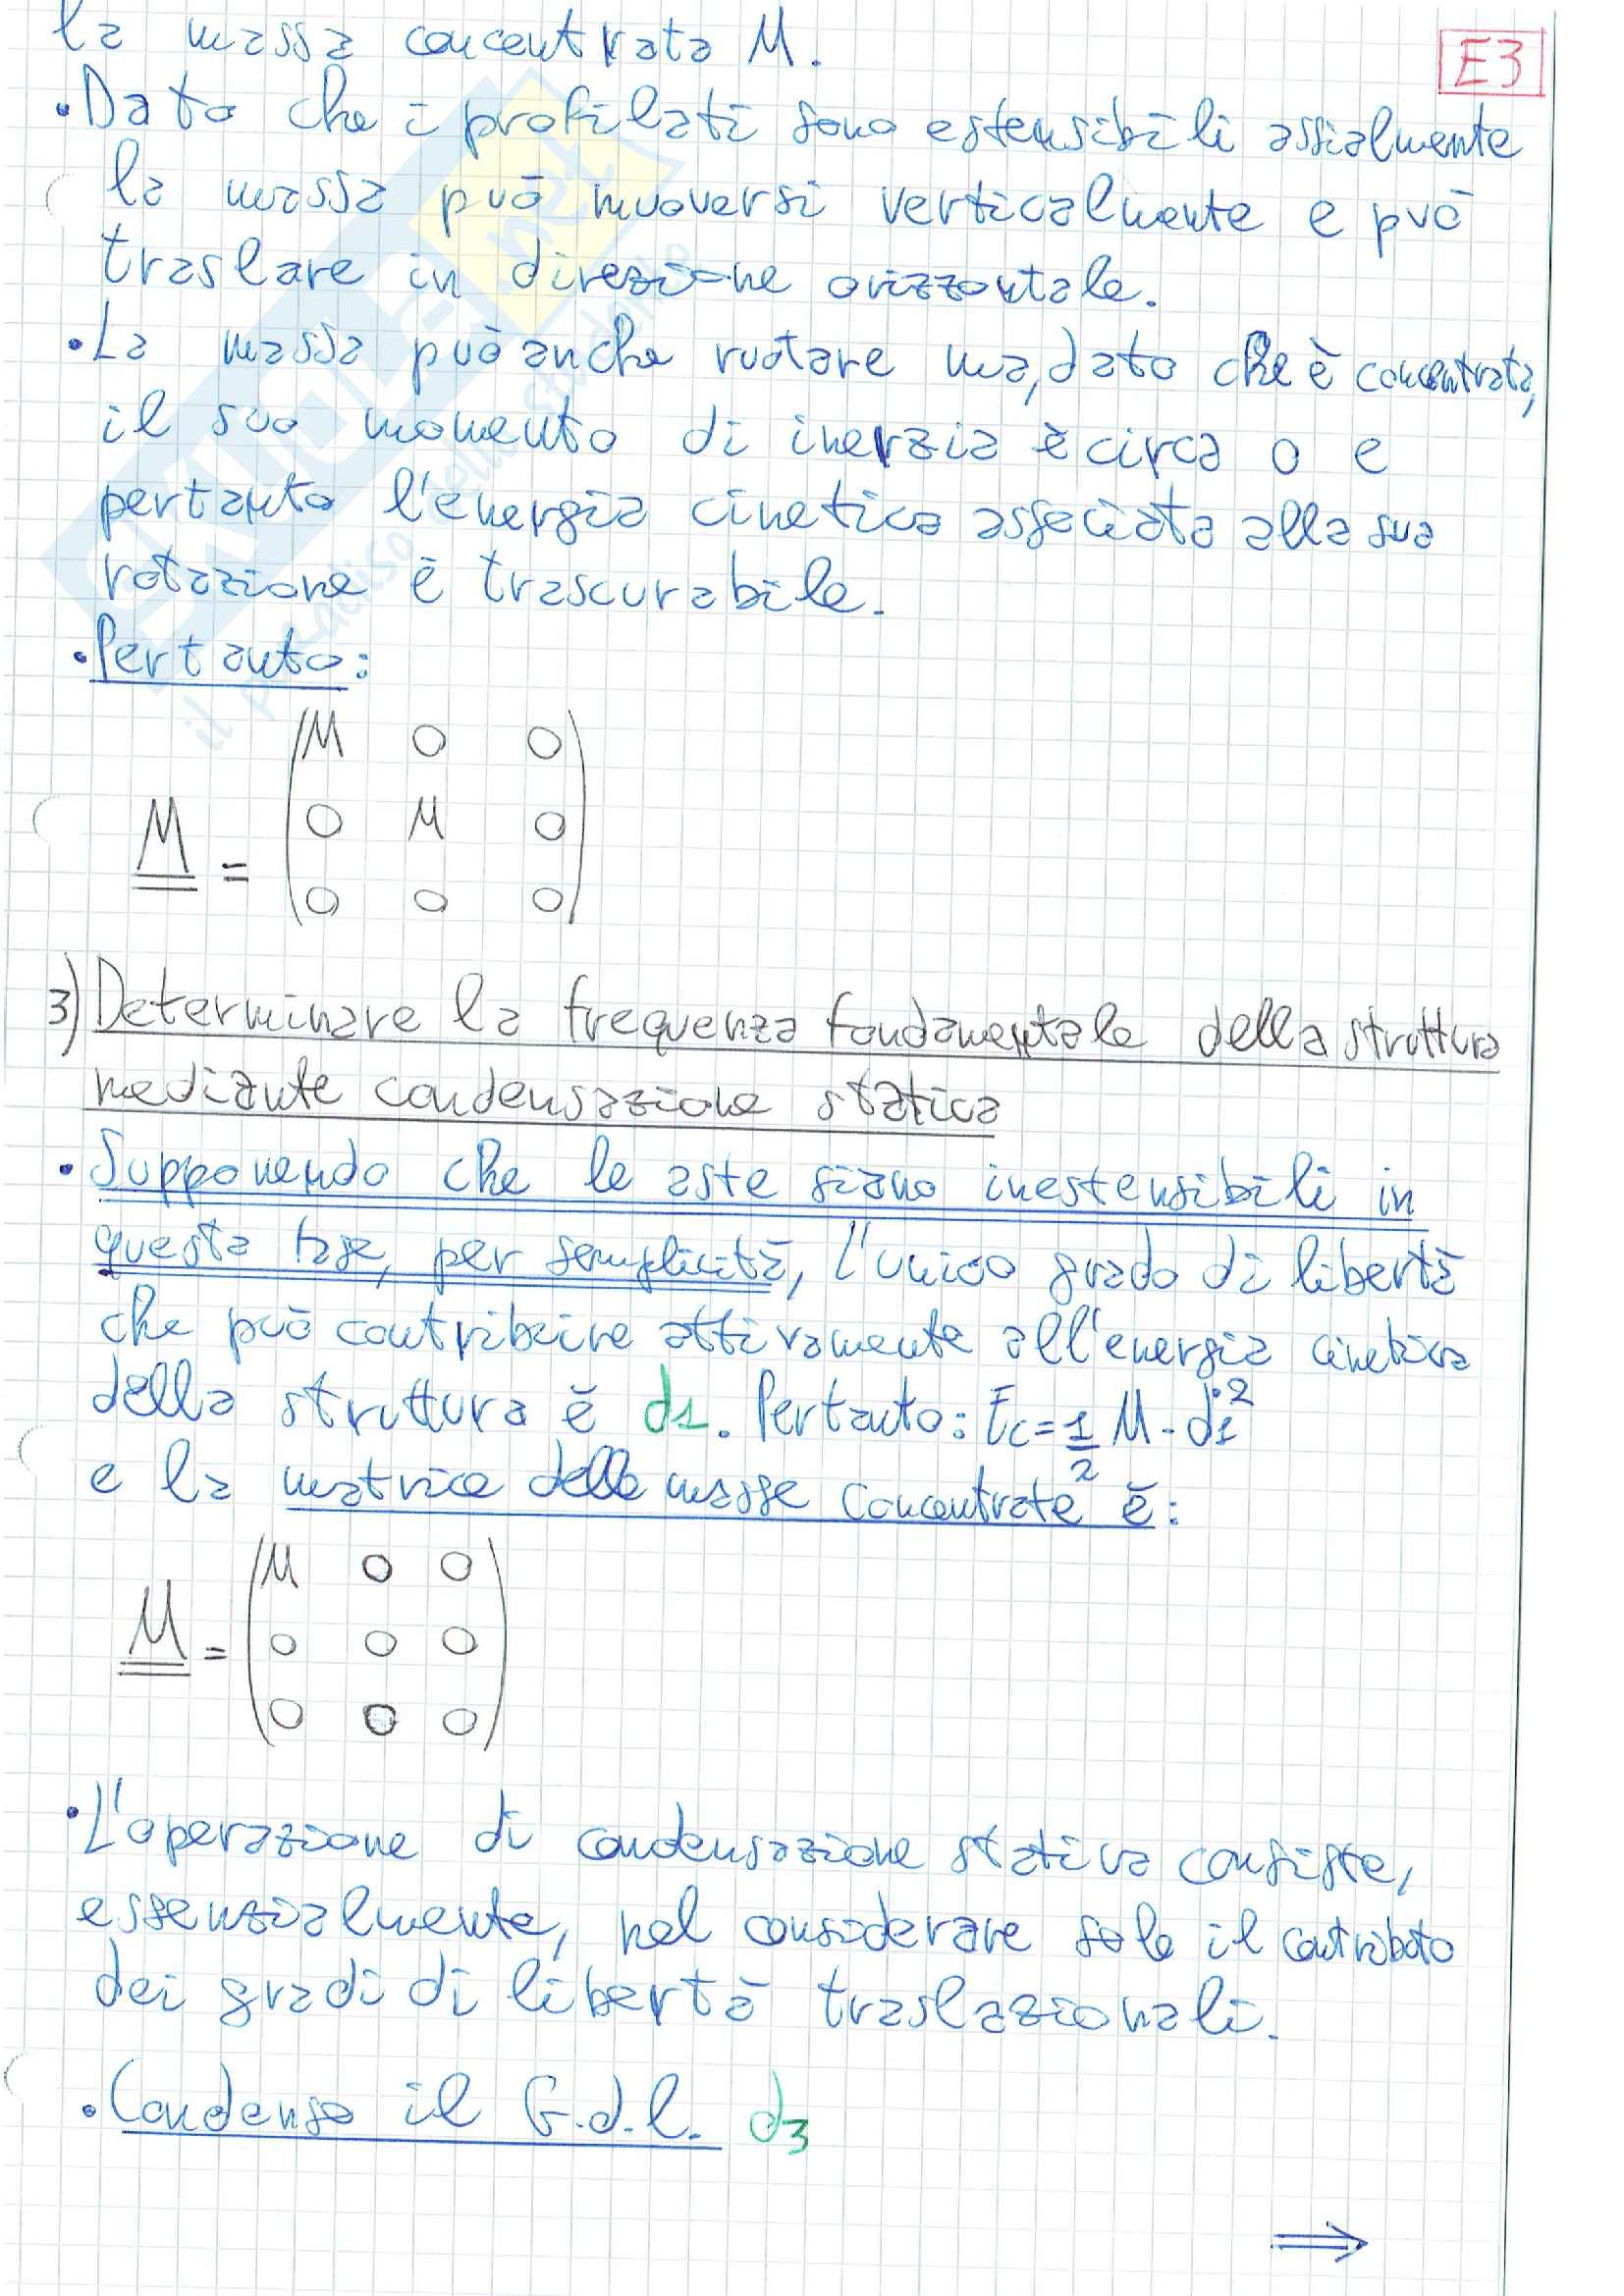 la massa concentrata M.
E3
• Dato che i profilati sono estensibili assialmente
la massa può muoversi verticalmente e può
traslare in direzione orizzontale.
• La massa può anche ruotare ma, dato che è concentrata,
il suo momento di inerzia è circa 0 e
pertanto l'energia cinetica associata alla sua
rotazione è trascurabile.
• Pertanto:
M 0 0
M = 0 M 0
0 0 0
3) Determinare la frequenza fondamentale della struttura
mediante condensazione statica
• Supponendo che le aste siano inestensibili in
questa fase, per semplicità, l'unico grado di libertà
che può contribuire attivamente all'energia cinetica
della struttura è d1. Pertanto: Ec = 1/2 M · ḋ1²
e la matrice delle masse concentrate è:
M 0 0
M = 0 0 0
0 0 0
• L'operazione di condensazione statica consiste,
essenzialmente, nel considerare solo il contributo
dei gradi di libertà traslazionali.
• Condenso il G.d.l. d3
⇒